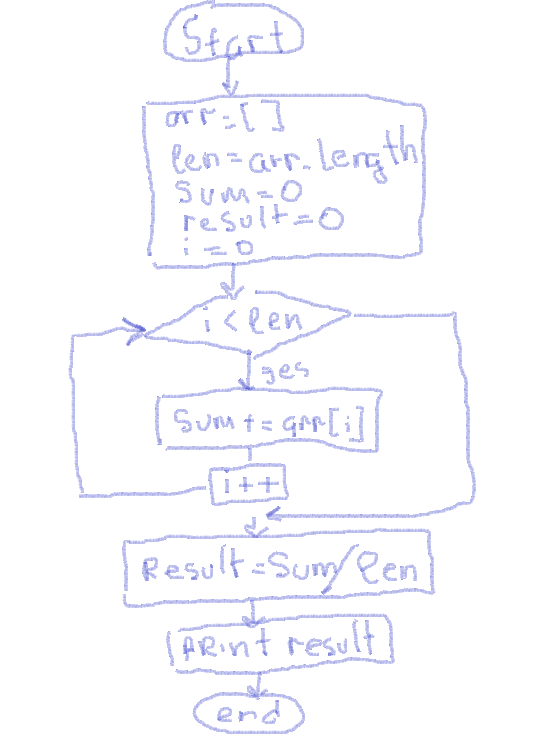 Start
arr=[ ]
len=arr.length
sum=0
result=0
i=0
i < len
yes
Sum+=arr[i]
i++
Result=Sum/len
PRint result
end